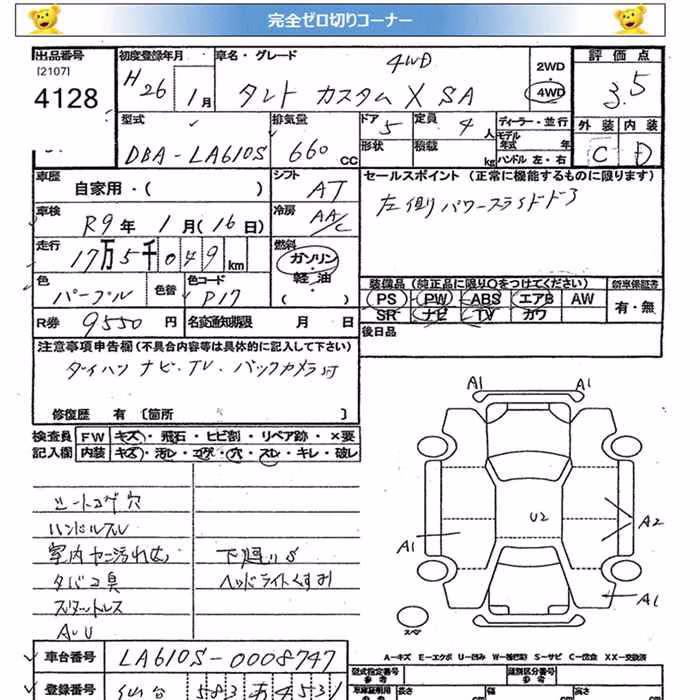 完全ゼロ切りコーナー
出品番号
[2107]
4128
初度登録年月
H26年 1月
車名・グレード
4WD
タント カスタム X SA
2WD
・
4WD
評価点
3.5
外装 内装
C D
型式
DBA-LA610S
排気量
660 CC
ドア 5
定員 4 人
形状
積載 kg
ディーラー・並行
モデル年式 年
ハンドル 左・右
車歴
自家用・( )
シフト
AT
セールスポイント (正常に機能するものに限ります)
左側パワースライドドア
車検
R9年 1月(16日)
冷房
AA/C
走行
17万5千049km
燃料
ガソリン
・
軽油
( )
色
パープル
色替
色コード
P17
装備品(純正品に限り○をつけてください)
PS PW ABS エアB AW
SR ナビ TV カワ
新車保証書
有・無
R券 9550円
名変通知期限 月 日
後日品
注意事項申告欄(不具合内容等は具体的に記入して下さい)
ダイハツ ナビ・TV・バックカメラ付
修復歴 有 [箇所 ]
検査員 FW キズ・飛石・ヒビ割・リペア跡・×要
記入欄 内装 キズ・汚レ・コゲ・穴・スレ・キレ・破レ
シートコゲ穴
ハンドルスレ
室内ヤニ汚れ大
タバコ臭
スタットレス
AUU
下廻りS
ヘッドライトくすみ
A1 A1
U2
A2
A1
A1
スペア
A-キズ E-エクボ U-凹み W-補修跡 S-サビ C-腐食 XX-交換済
車台番号 LA610S-0008747
登録番号 仙台 583 あ 4531
型式指定番号
類別区分番号
車庫証明用 参考
長さ cm
幅 cm
高さ cm